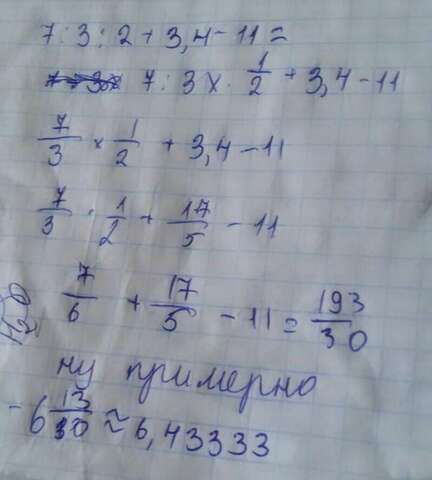 7:3:2+3,4-11=
7:3×.1/2+3,4-11
7/3×1/2+3,4-11
7/3·1/2+17/5-11
7/6+17/5-11=193/30
H2O
ну примерно
-6 13/30≈6,43333